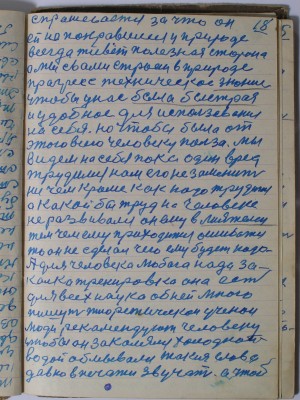 спрашевасти за что он 68
ет не понравился у природе
всегда живёт полезная сторона
а мы свами строим в природе
прагрес техническое знание
чтобы у нас была быстрая
и удобное для использования
на себя. но чтобы была от
этого всего человеку польза. мы
видем на себя пока один вред
трудиму нам его не заменить
ни чем кроме как надо трудится
а какой бы труд на человеке
не развивали он ему в
тем чем ему приходится
то он не сделал чего ему будет надо
А для человека любога надо за-
калка тренировка она есть
для всех наука об ней много
пишут теоретически ученои
люди рекамендуют человеку
чтобы он закалялся холоднои
водой обливался такия слова
давно в печати звучат. а чтоб